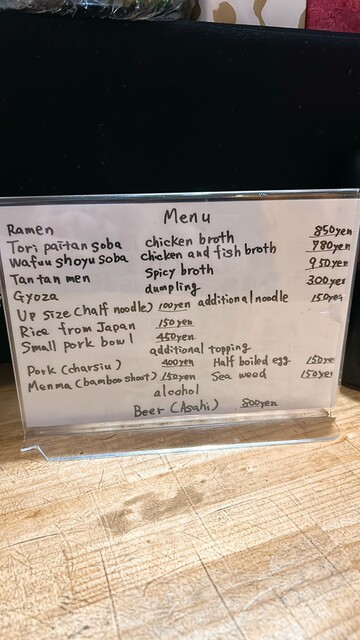 Menu
Ramen
Tori paitan soba chicken broth 850yen
Wafuu shoyu soba chicken and fish broth 780yen
Tan tan men spicy broth 950yen
Gyoza dumpling 300yen
Up size (half noodle) 100yen additional noodle 150yen
Rice from Japan 150yen
Small pork bowl 450yen
additional topping
Pork (charsiu) 400yen Half boiled egg 150yen
Menma (bamboo shoot) 150yen Sea weed 150yen
alcohol
Beer (Asahi) 800yen